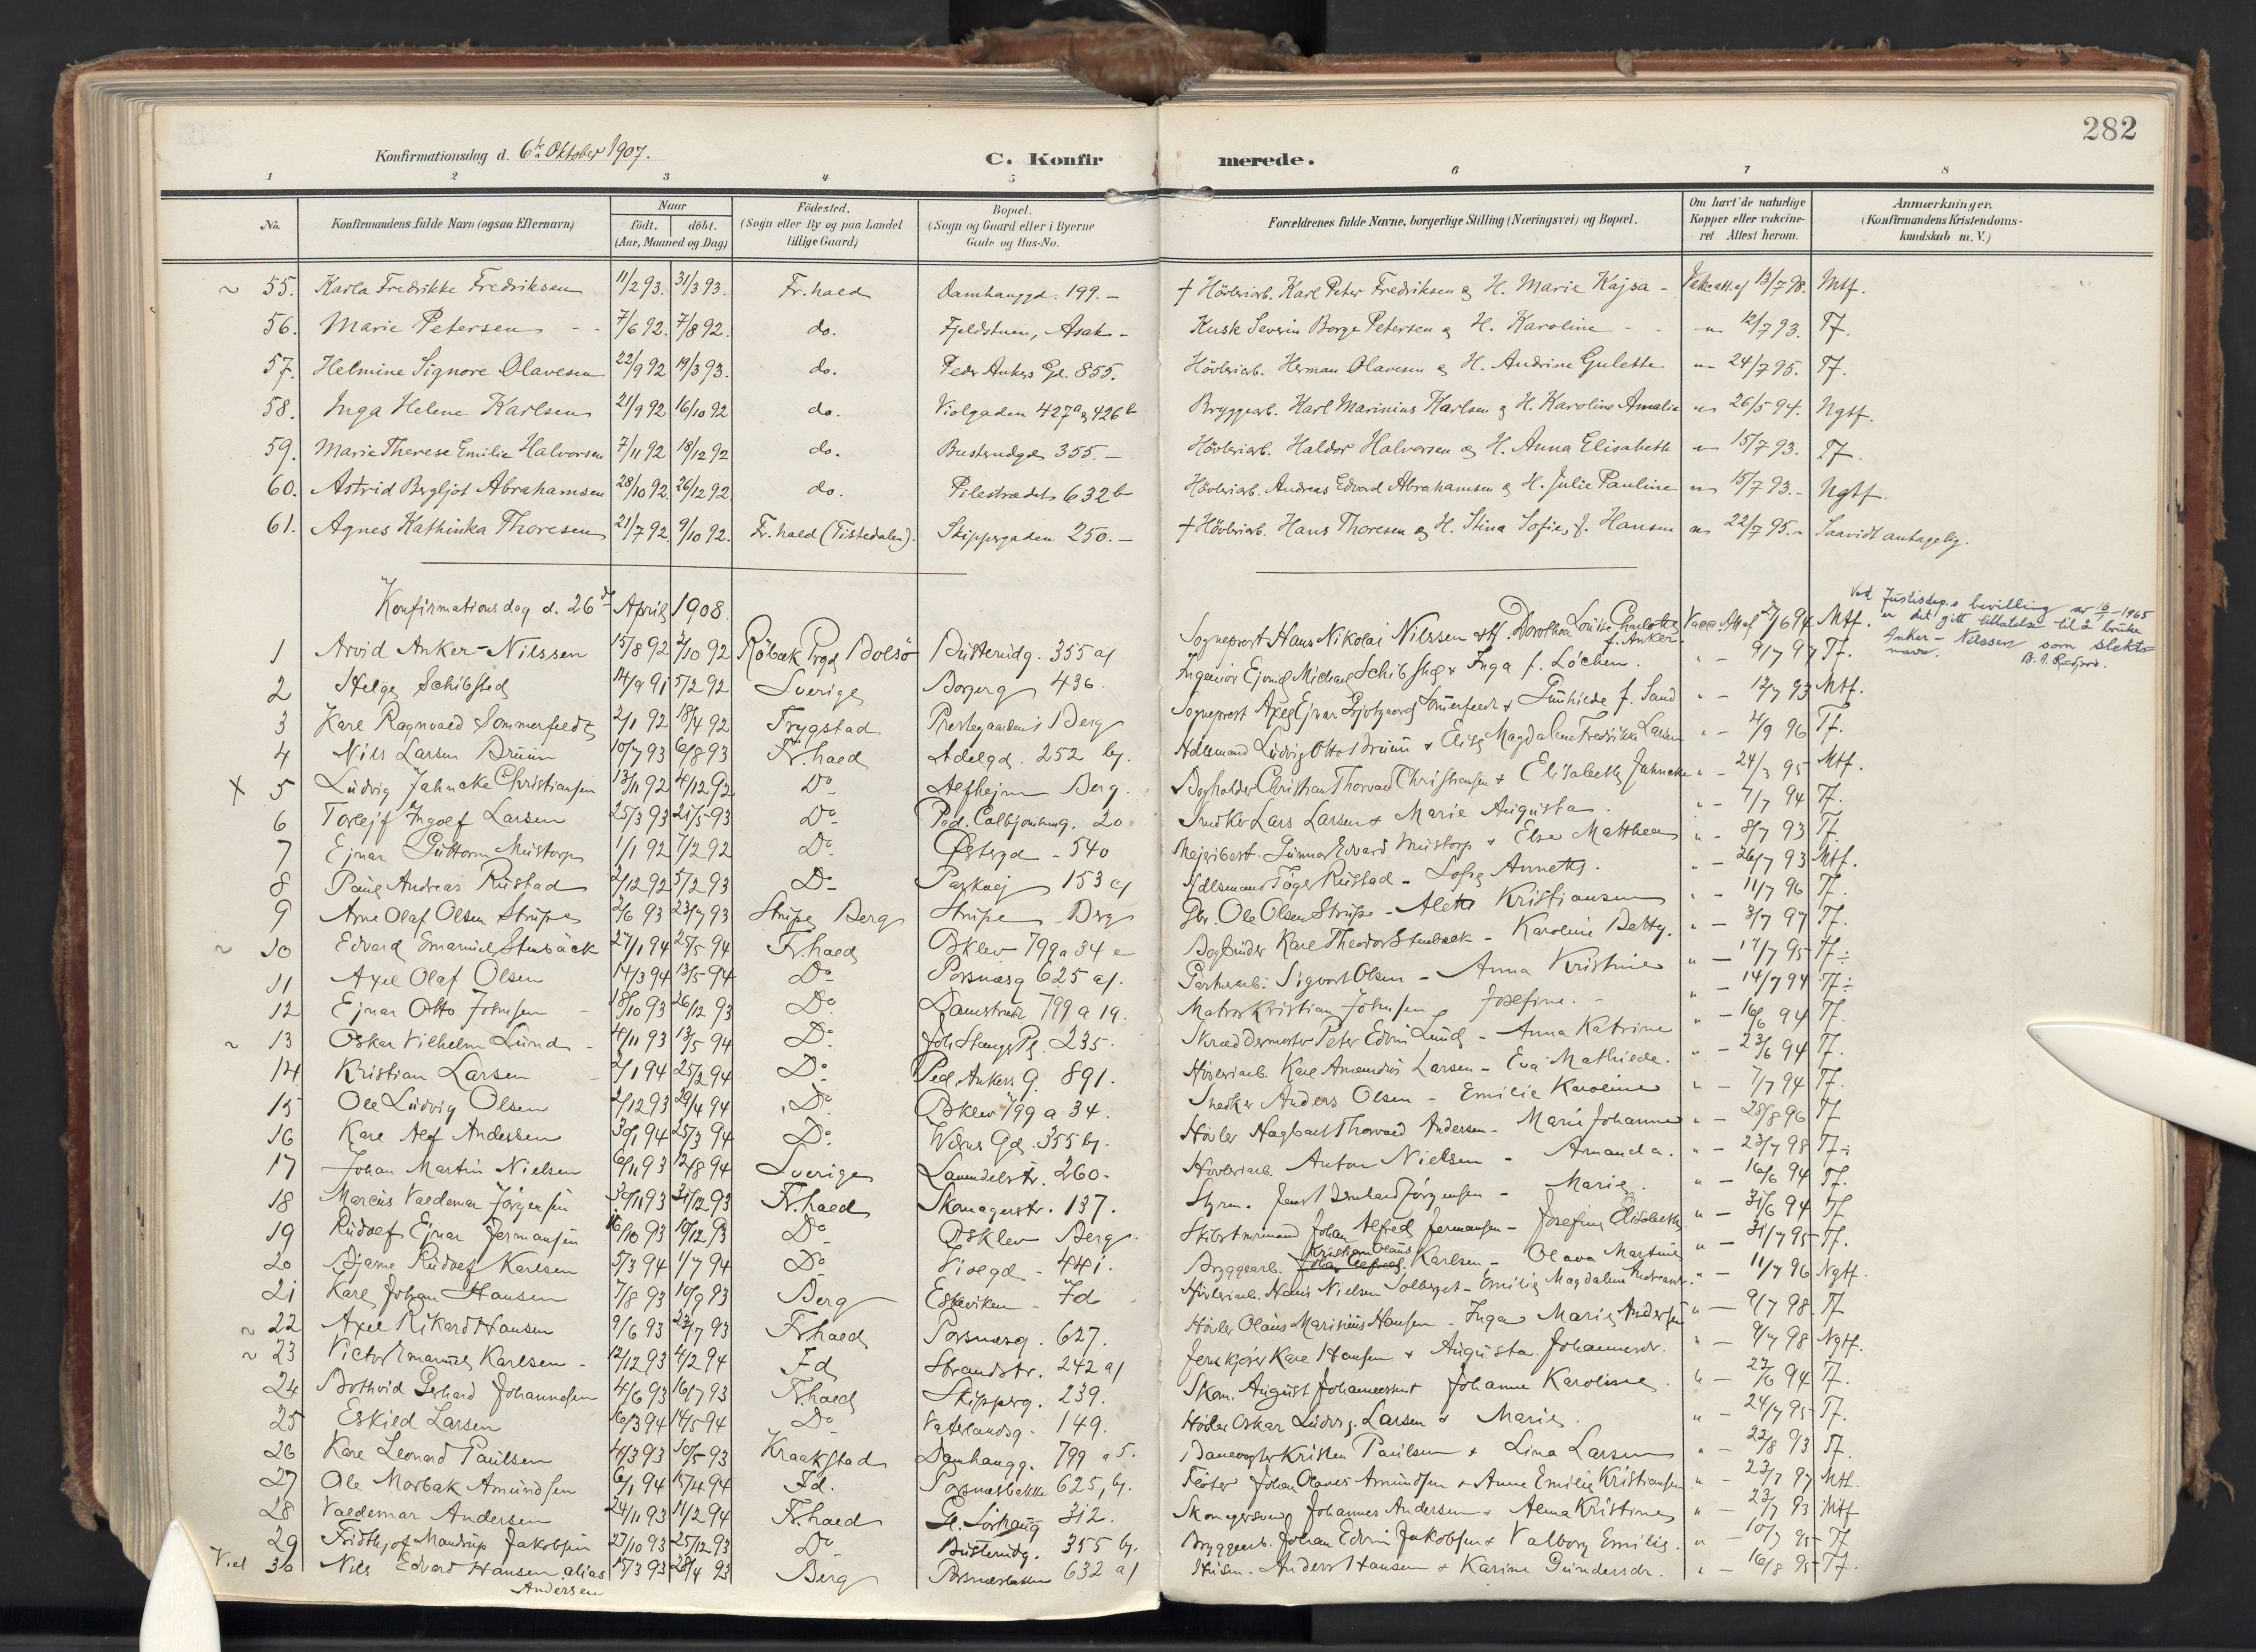 282
Konfirmationsdag d. 6te Oktober 1907.
C. Konfirmerede.
1 2 3 4 5 6 7 8
No. Konfirmandens fulde Navn (ogsaa Efternavn) Naar født. døbt. (Aar, Maaned og Dag) Fødested. (Sogn eller By og paa Landet tillige Gaard) Bopæl. (Sogn og Gaard eller i Byerne Gade og Hus-No. Forældrenes fulde Navne, borgerlige Stilling (Næringsvei) og Bopæl. Om havt de naturlige Kopper eller vakcineret Attest herom. Anmærkninger. (Konfirmandens Kristendomskundskab m. V.)
~ 55. Karla Fredrikke Fredriksen 11/2 93. 31/3 93. Fr.hald Damhauggd. 199. – † Høvleriarb. Karl Peter Fredriksen & H. Marie Kajsa – Vakc.att. af 13/7 98. Mtf.
56. Marie Petersen 7/6 92. 7/8 92. do. Fjeldstuen, Asak – Kusk Severin Borge Petersen & H. Karoline – 12/7 93. Tf.
57. Helmine Signore Olavesen 22/9 92 19/3 93. do. Peder Ankers Gd. 855. Høvleriarb. Herman Olavesen & H. Andrine Gulette 24/7 95. Tf.
58. Inga Helene Karlsen 21/9 92 16/10 92 do. Violgaden 427a & 426b Bryggearb. Karl Marinius Karlsen & H. Karoline Amalie 26/5 94. Ngtf.
59. Marie Therese Emilie Halvorsen 7/11 92 18/12 92 do. Busterudgd 355. – Høvleriarb. Haldor Halvorsen & H. Anna Elisabeth 15/7 93. Tf.
60. Astrid Bergljot Abrahamsen 28/10 92. 26/12 92. do. Pilestrædet 632b Høvleriarb. Andreas Edvard Abrahamsen & H. Julie Pauline 15/7 93. – Ngtf.
61. Agnes Kathinka Thoresen 21/7 92. 9/10 92. Fr.hald (Tistedalen). Skippergaden 250. – † Høvleriarb. Hans Thoresen & H. Stina Sofie, f. Hansen 22/7 95. Saavidt antagelig.
Konfirmationsdag d. 26de April 1908.
Ved Justisdep.s bevilling av 16/ – 1965
er det gitt tillatelse til å bruke
Anker-Nilssen som slekts-
navn.
1 Arvid Anker-Nilssen 15/8 92 2/10 92 Röbæk Prgd Bolsö Busterudg. 355 a/ Sogneprest Hans Nikolai Nilssen & H. Dorothea Louise Charlotte f. Anker. Vacc. Att. af 2/6 94 Mtf.
2 Helge Schibsted 14/9 91 5/2 92 Sverige Borgerg 436. Ingeniör Ejvind Michael Schibsted & Inga f. Löchen. " – 9/7 97 Tf.
3 Karl Ragnvald Sommerfeldt 2/1 92 18/4 92 Trygstad Prestegaarden i Berg Sogneprest Axel Ejnar Sommerfeldt & Gunhilde f. Sand " – 12/7 93 Mtf.
4 Nils Larsen Bruun 10/7 93 6/8 93 Fr.hald Adelgd. 252 b/. Hdlsmand Ludvig Otto Bruun & Elise Magdalene Fredrikke Larsen " – 4/9 96 Tf.
X 5 Ludvig Jahncke Christiansen 13/11 92 4/12 92 Do Alfhejm Berg. Bogholder Christian Thorvald Christiansen & Elisabeth Jahncke " – 24/3 95 Mtf.
6 Torlejf Ingolf Larsen 25/3 93 21/5 93 Do Ped. Colbjørnsensg. 20 Lars Larsen & Marie Augusta. " – 7/7 94 Tf.
7 Ejnar Guttorm Mustorp 1/1 92 7/2 92 Do. Østergd – 540 Mejeribest. Gunnar Edvard Mustorp & Else Matthea " – 8/7 93 Tf
8 Paul Andreas Rustad 2/12 92 5/2 93 Do Parkvej 153 c/ Hdlsmand Rustad – Sofie Annette. " – 26/7 93 Mtf.
9 Arne Olaf Olsen Strupe 2/6 93 23/7 93 Strupe Berg Strupe Berg Gbr. Ole Olsen Strupe – Alette Kristiansen " – 11/7 96 Tf.
~ 10 Edvard Emanuel Stenbäck 27/1 94 25/5 94 Fr.hald Øsklev 799 a 34 Bogbinder Karl Theodor Stenback – Karoline Betty. " – 3/7 97 Tf.
11 Axel Olaf Olsen 14/3 94 13/5 94 Do Porsnæsg 625 a/. Sigvart Olsen – Anna Kristine " – 17/7 95 Tf ÷
12 Ejnar Otto Johnsen 18/10 93 26/12 93 Do Damstræde 799 a 19. Matros Kristian Johnsen & Josefine. " – 14/7 94 Tf ÷
~ 13 Oskar Vilhelm Lund 4/11 93 13/5 94 Do. Joh. Stangs Pl. 235. Skræddermester Peter Edvin Lund – Anna Katrine " – 16/6 94 Tf.
14 Kristian Larsen 2/1 94 25/2 94 Do Ped. Ankers g. 891. Høvleriarb. Karl Amandus Larsen – Eva Mathilde. " – 23/6 94 Tf.
15 Ole Ludvig Olsen 2/12 93 29/4 94 Do Øsklev 799 a 34. Snedker Anders Olsen – Emilie Karoline " – 7/7 94 Tf.
16 Karl Alf Andersen 30/1 94 25/3 94 Do. Værns Gd. 355 b/. Høvler Hagbart Thorvald Andersen – Marie Johanne " – 28/8 96 Tf
17 Johan Martin Nielsen 6/11 93 12/8 94 Sverige Lavendelstr. 260. Høvleriarb. Anton Nielsen – Amanda. " – 23/7 98 Tf ÷
18 Marcus Valdemar Jörgensen 30/11 93 31/12 93 Fr.hald Skomagerstr. 137. Styrm. Jens Bernhard Jörgensen – Marie. " – 16/6 94 Tf.
19 Rudolf Ejnar Hermansen 16/10 93 10/12 93 Do Øsklev Berg. Johan Alfred Hermansen – Josefine Elisabeth " – 31/6 94 Tf
20 Bjarne Rudolf Karlsen 5/3 94 1/7 94 Do Violgd – 441. Bryggearb. Kristian Olaus Karlsen – Olava Martine " – 31/7 95 Tf.
21 Karl Johan Hansen 7/8 93 10/9 93 Berg Eskeviken – Fd Høvleriarb. Hans Nielsen Solberget – Emilie Magdalene Andreasdr. " – 11/7 96 Ngtf.
~ 22 Axel Rikard Hansen 9/6 93 23/7 93 Fr.hald Porsnæsg. 627. Høvler Olaus Marinius Hansen – Inga Marie Andersen " – 9/7 98 Tf
~ 23 Victor Emanuel Karlsen – 12/12 93 4/2 94 Fd Strandstr. 242 a/ Karl Hansen & Augusta Johannesdr. " – 9/7 98 Ngtf.
24 Bothvid Gerhard Johannesen 4/6 93 16/7 93 Fr.hald Skipperg. 239. Skom. August Johannessen & Johanne Karoline. " – 22/6 94 Tf.
25 Eskild Larsen 16/3 94 14/5 94 Do Vaterlandsg. 149. Høvler Oskar Ludvig Larsen & Marie. " – 24/7 95 Tf.
26 Karl Leonard Paulsen 4/3 93 30/5 93 Kraakstad Damhaugg. 799 a 5. Kristen Paulsen & Lina Larsen " – 22/8 93 Tf.
27 Ole Morbak Amundsen 6/1 94 15/4 94 Fd. Porsnæsbakke 625, b/. Fløter Johan Olaves Amundsen & Anne Emilie Kristiansen " – 23/7 97 Mtf.
28 Valdemar Andersen 24/11 93 11/2 94 Fr.hald Gl. Sörhaug 312. Skomagersvend Johannes Andersen & Alma Kristine " – 23/7 93 Mtf
29 Fridthjof Mandrup Jakobsen 27/10 93 25/12 93 Do Busterudg. 355 b/. Bryggearb. Johan Edvin Jakobsen & Valborg Emilie. " – 10/7 95 Tf
30 Nils Edvard Hansen alias Andersen 15/3 93 28/4 93 Berg Porsnæsbakken 632 a/ Anders Hansen & Karine Gundersdr. " – 16/8 95 Tf.